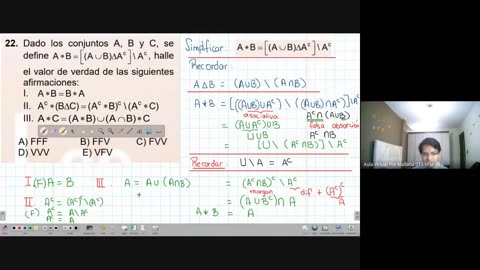 22. Dado los conjuntos A, B y C, se
define A∗B=[(A∪B)ΔAᶜ]\Aᶜ, halle
el valor de verdad de las siguientes
afirmaciones:
I. A∗B=B∗A
II. Aᶜ∗(BΔC)=(A∗B)ᶜ\(Aᶜ∗C)
III. A∗C=(A∗B)∪(A∩B)∗C
A) FFF B) FFV C) FVV
D) VVV E) VFV
Simplificar: A∗B=[(A∪B)ΔAᶜ]\Aᶜ
Recordar:
AΔB = (A∪B) \ (A∩B)
A∗B = [((A∪B)∪Aᶜ) \ ((A∪B)∩Aᶜ)]\Aᶜ
asociativa
= (A∪Aᶜ)∪B
U∪B
Aᶜ∩(A∪B)
falsa absorción
Aᶜ∩B
= [U \ (Aᶜ∩B)] \ Aᶜ
Recordar: U\A = Aᶜ
= (Aᶜ∩B)ᶜ \ Aᶜ
morgan
dif + (Aᶜ)ᶜ
A
= (A∪Bᶜ)∩A
A∗B = A
I (F) A = B
III. A = A∪(A∩B)
II. Aᶜ = (Aᶜ)\(Aᶜ)
(F) Aᶜ = A\Aᶜ
Aᶜ = A